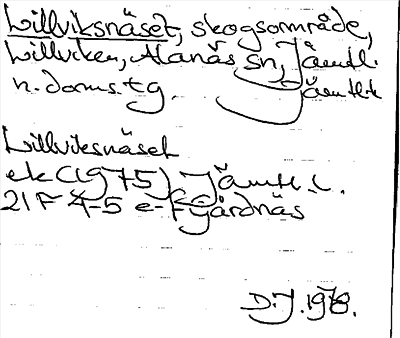 Lillviksnäset, skogsområde,
Lillviken, Alanäs sn, Jämtl.
n. doms.tg. Jämtl.l.
Lillviksnäset
ek (1975) Jämtl. l.
21 F 4-5 e-f Gårdnäs
D.J. 1978.